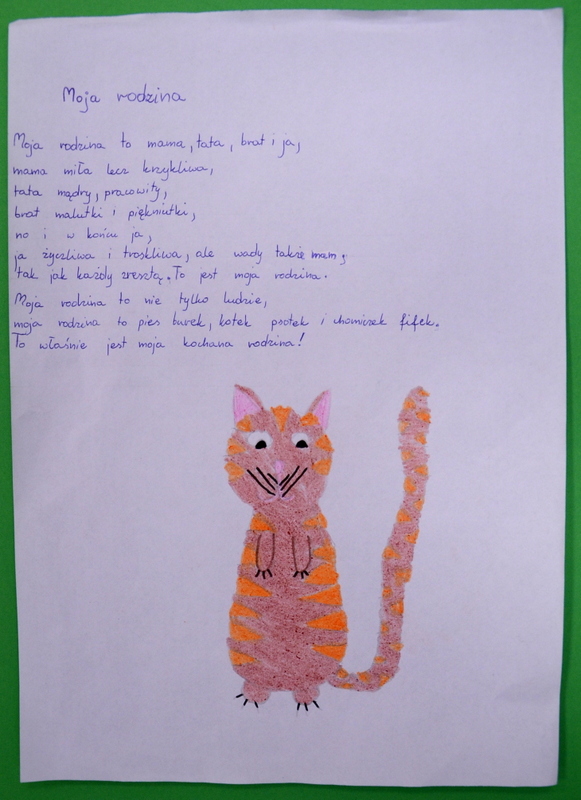 Moja rodzina
Moja rodzina to mama, tata, brat i ja,
mama miła lecz krzykliwa,
tata mądry, pracowity,
brat malutki i piękniutki,
no i w końcu ja,
ja życzliwa i troskliwa, ale wady także mam,
tak jak każdy zresztą. To jest moja rodzina.
Moja rodzina to nie tylko ludzie,
moja rodzina to pies burek, kotek psotek i chomiczek fifek.
To właśnie jest moja kochana rodzina!